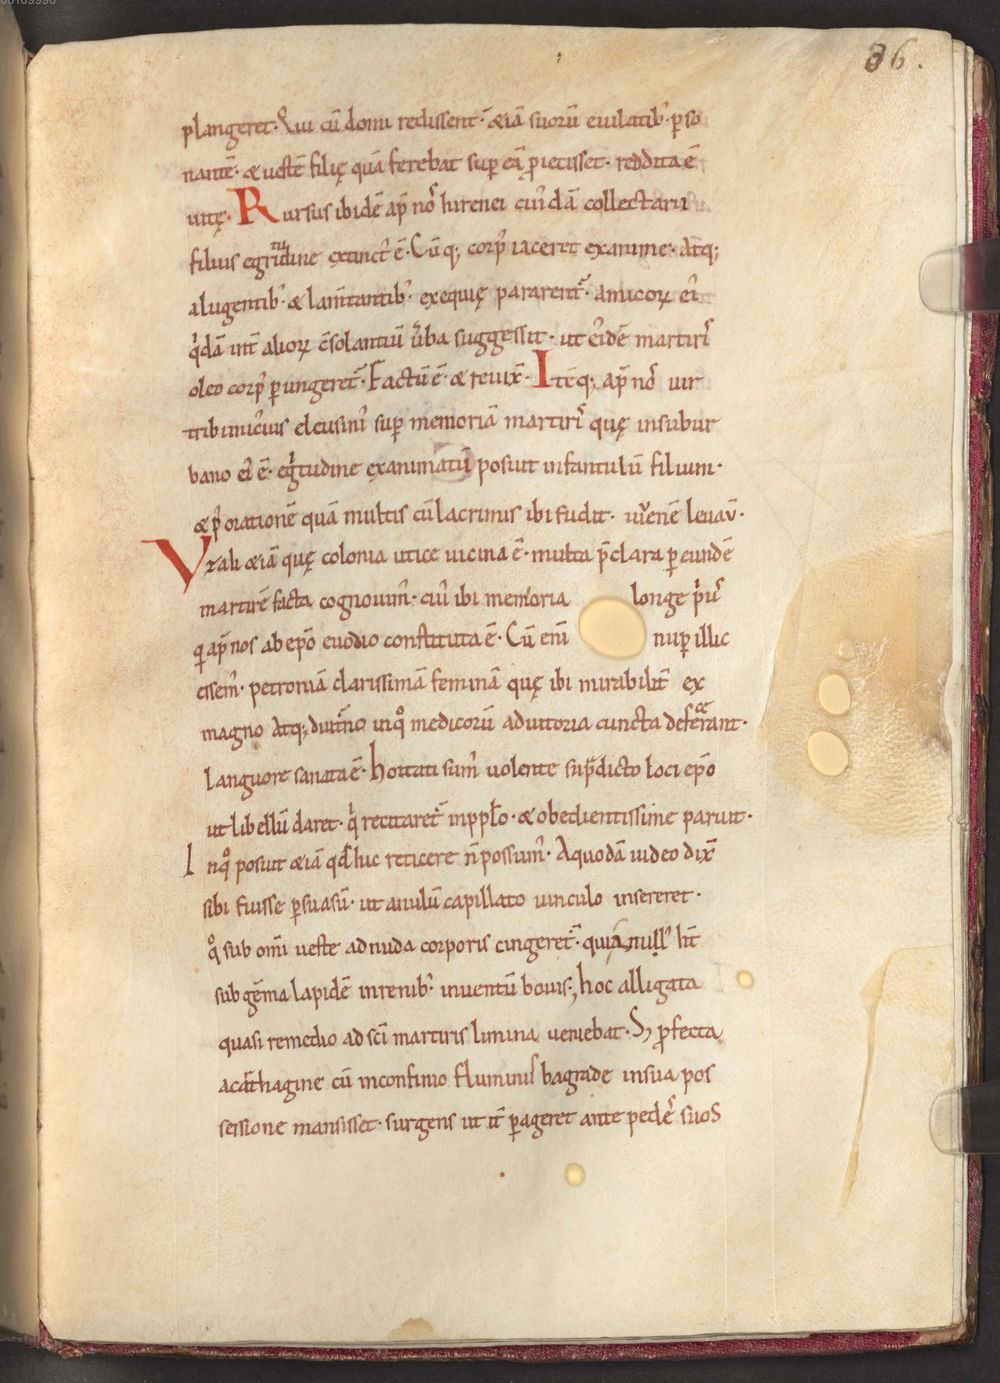 86.
plangeret· Qui cū domū redissent· &iā suorū eiulatib; p̱so
nantē· & uestē filię quā ferebat sup̱ eā ꝓiecisset· reddita ē
uitę· Rursus ibidē ap̄ nōs hirenei cuı'dā collectarii
filius egritudine extinct' ē· Cūq; corp' iaceret exanime· Atq;
a lugentib; & lam̄tantib; exequię pararent᷑· amicoꝝ ei'
qͥdā int̄ alioꝝ c̄solantiū ūba suggessit· ut ei'dē martiri'
oleo corp' p̱ungeret᷑· Factū ē· & reuix̄· Itēq; ap̄ nōs uir
tribunicius eleusin' sup̱ memoriā martiri' quę in subur
bano ei' ē· egͥtudine exanimatū posuit infantulū filium·
& p' orationē quā multis cū lacrimis ibi fudit· uiuentē leuaū·
Vzali &iā quę colonia utice uicina ē· multa p̄clara p̱ eundē
martirē facta cognouim'· cui' ibi memoria longe pͥus
q̄ ap̄ nos ab ep̄o euodio constituta ē· Cū enī nup̱ illic
essem'· petroniā clarissimā feminā quę ibi mirabilit̄ ex
magno Atq; diut̄no in qͦ medicorū adiutoria cuncta defecerant·
languore sanata ē· hortati sum' uolente sup̄dicto loci ep̄o
ut libellū daret· qͥ recitaret᷑ in pp̄lo· & obedientissime paruit·
In qͦ posuit &iā qd̄ hic reticere n̄ possum'· A quodā iudeo dix̄
sibi fuisse p̱suasū· ut anulū capillato uinculo insereret·
qͦ sub om̄i ueste ad nuda corporis cingeret᷑· qui anull' h̄t
sub gēma lapidē in renib; inuentū bouis; hoc alligata
quasi remedio ad sc̄i martiris limina ueniebat· S; ꝓfecta
a cathagine cū in confinio fluminis bagrade in sua pos
sessione mansisset· surgens ut it̄ p̱ageret ante pedes suos